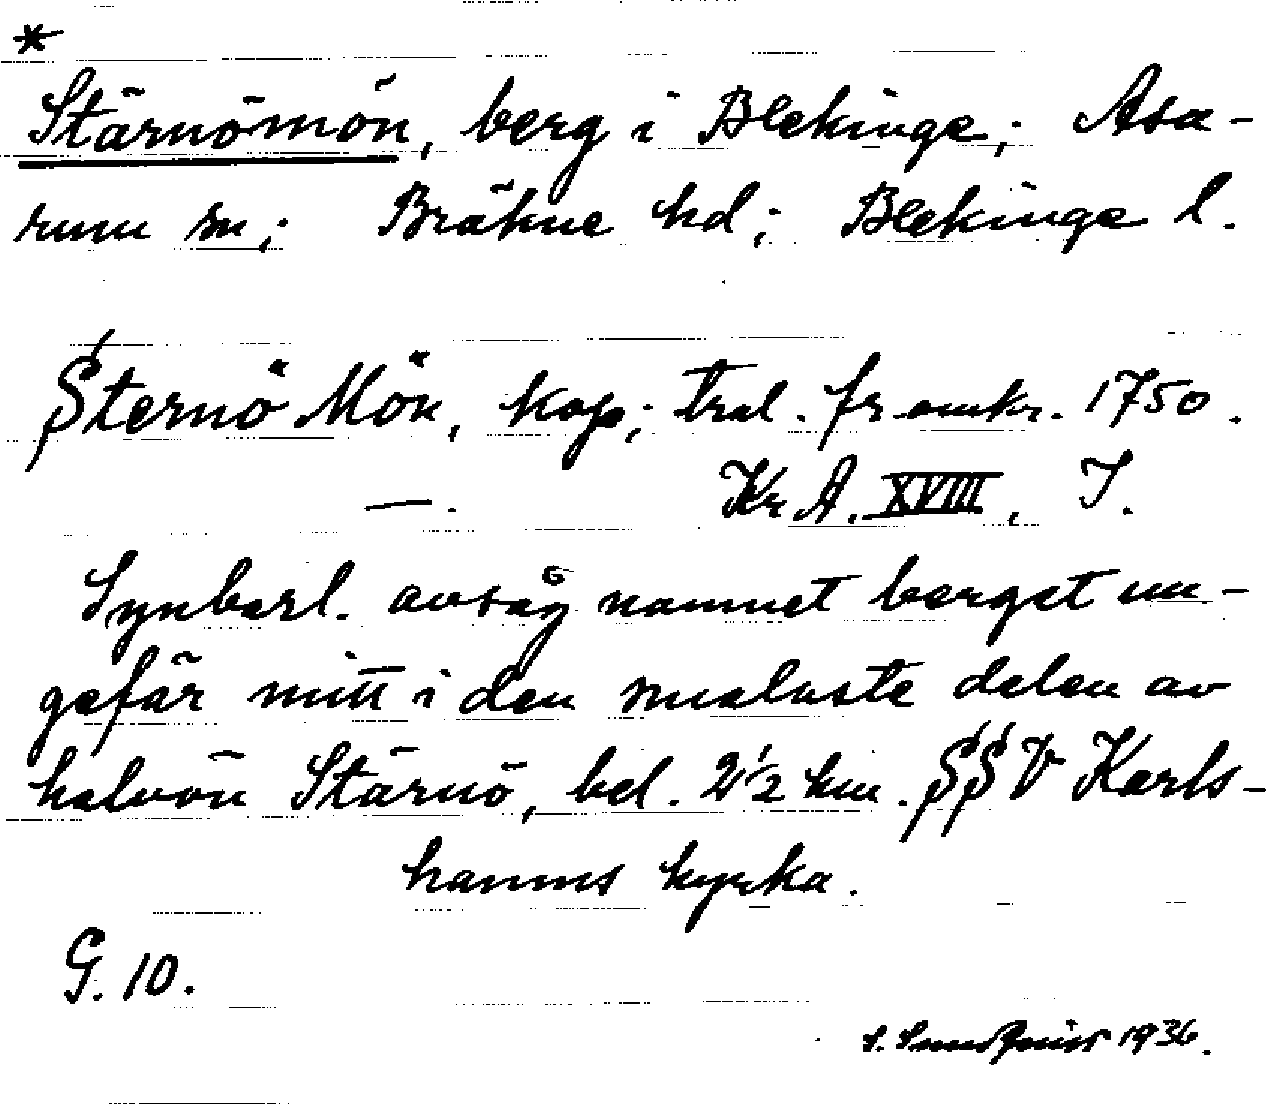 *
Stärnömön, berg i Blekinge; Asa-
rum sn; Bräkne hd; Blekinge l.
Sternö Mön, kop; tral. fr omkr. 1750.
—. KrA. XVIII, I.
Synbarl. avsåg namnet berget un-
gefär mitt i den smalaste delen av
halvön Stärnö, bel. 2 1/2 km. SSV Karls-
hamns kyrka.
G. 10.
S. 1936.